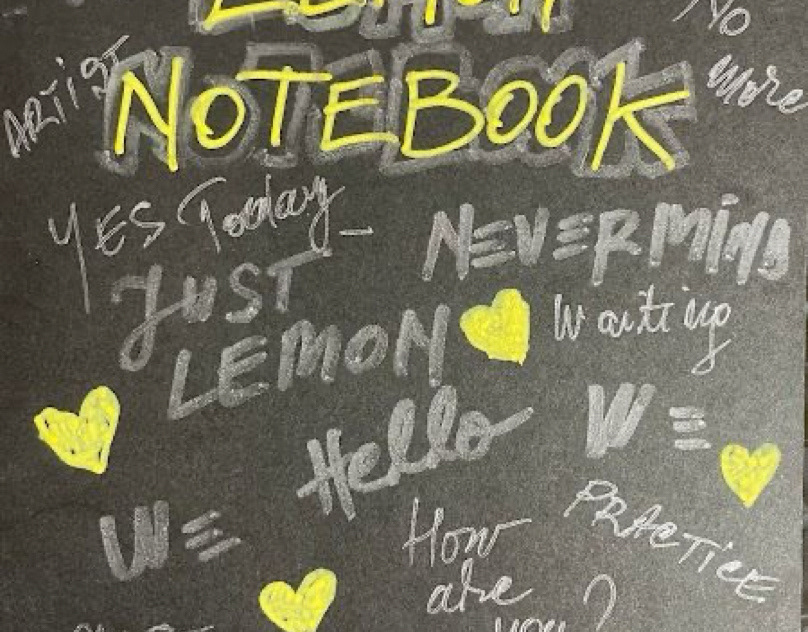 LEMON
NOTEBOOK
ARTIST
NO
More
YES Today_
NEVERMIND
JUST
LEMON
Waiting
Hello
WE
WE
PRACTICE
How
are
you?